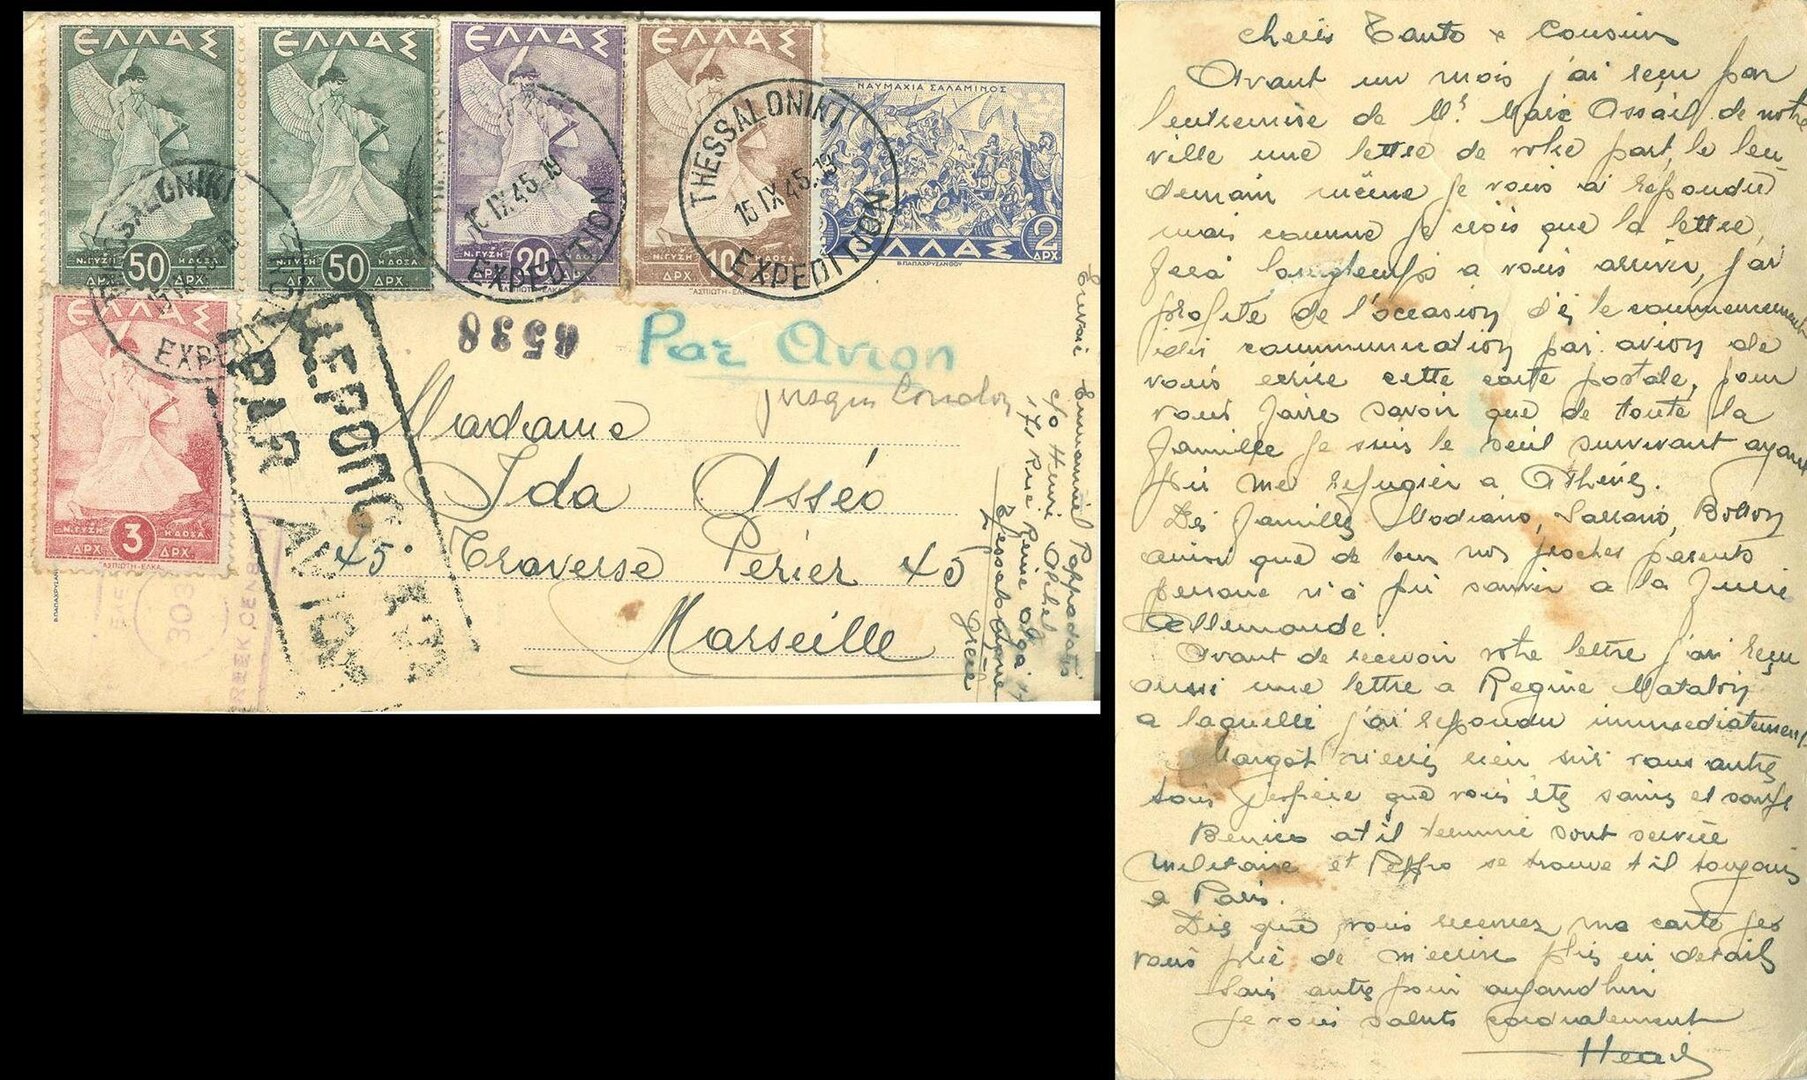 ΕΛΛΑΣ
ΕΛΛΑΣ
ΕΛΛΑΣ
ΕΛΛΑΣ
ΝΑΥΜΑΧΙΑ ΣΑΛΑΜΙΝΟΣ
Ν.ΓΥΖΗ 50 Η ΔΟΞΑ
ΔΡΧ. ΔΡΧ.
Ν.ΓΥΖΗ 50 Η ΔΟΞΑ
ΔΡΧ. ΔΡΧ.
20
ΔΡΧ
10
ΔΡΧ
ΑΣΠΙΩΤΗ-ΕΛΚΑ
ΕΛΛΑΣ 2
ΔΡΧ
Β.ΠΑΠΑΧΡΥΣΑΝΘΟΥ
THESSALONIKI
15 IX 45.19
EXPEDITION
THESSALONIKI
15 IX 45.19
EXPEDITION
THESSALONIKI
EXPEDITION
ΕΛΛΑΣ
Ν.ΓΥΖΗ 3 Η ΔΟΞΑ
ΔΡΧ. ΔΡΧ.
ΑΣΠΙΩΤΗ-ΕΛΚΑ
PAR AVION
6538
Par Avion
jusqu London
Madame
Ida Asséo
45 Traverse Périer 45
Marseille
303
GREEK CENSOR
Emmanuel
c/o Henri
171 Rue Reine Olga 171
Thessalonique
Grèce
cheris Tante & Cousins
Avant un mois j'ai reçu par
l'entremise de Mr. Marc Assaël de notre
ville une lettre de votre part, le len
demain même je vous ai repondu
mais comme je crois que la lettre
fera longtemps a vous arriver, j'ai
profité de l'occasion dés le commencement
des communication par avion de
vous ecrire cette carte postale, pour
vous faire savoir que de toute la
famille je suis le seul survivant ayant
pu me refugier a Athènes.
Des familles Modiano, Sarrano,
ainsi que de tous nos proches parents
persone n'a pu sauver a la furie
Allemande.
Avant de recevoir votre lettre j'ai reçu
aussi une lettre a Regine Matalon
a laquelle j'ai repondu immediatement
Margot n'ecris rien sur vous autres
tous j'espère que vous étes sains et saufs
Benico at il terminé sont service
militaire et Peppo se trouve t il toujours
a Paris.
Dés que vous recevrez ma carte je
vous prie de m'ecrire plus en details
Sans autre pour aujourdhui
je vous saluts cordialement